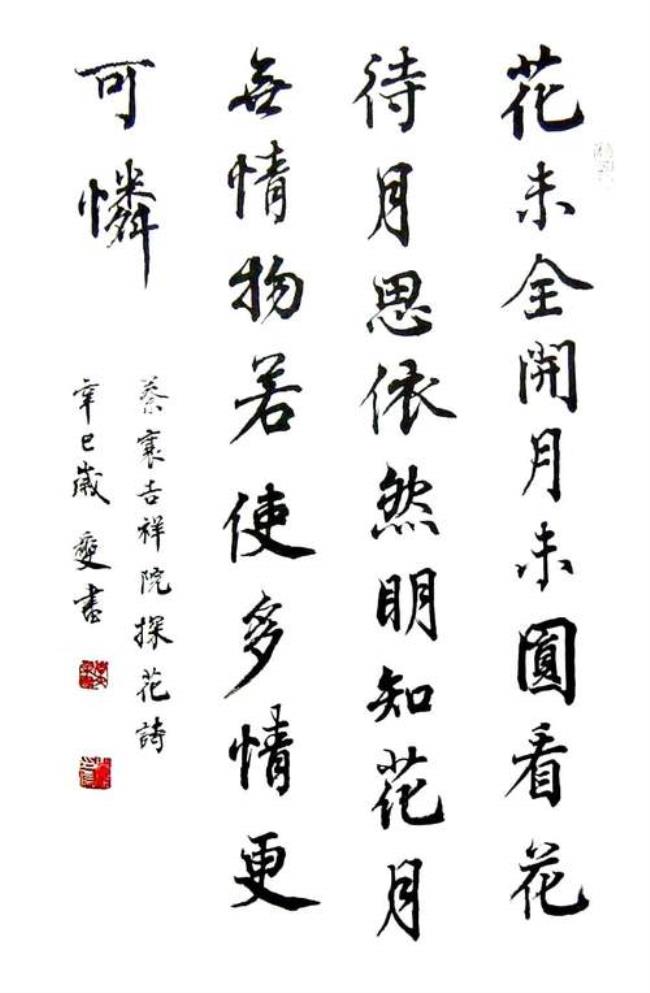 花未全開月未圓看花
待月思依然明知花月
無情物若使多情更
可憐
蔡襄吉祥院探花詩
辛巳歲 書